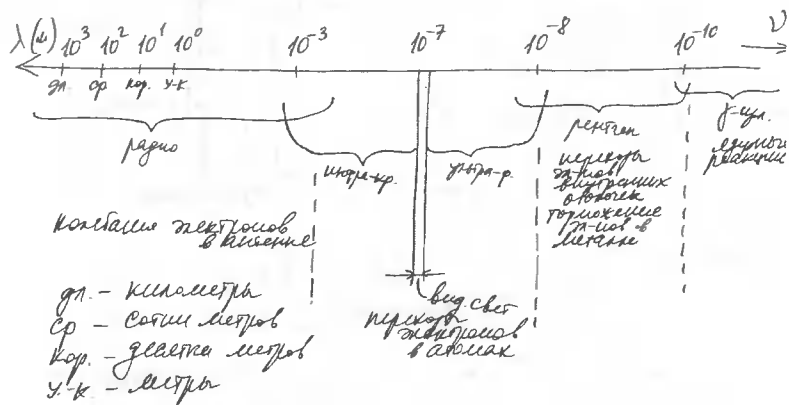 λ(м) 10³ 10² 10¹ 10⁰ 10⁻³ 10⁻⁷ 10⁻⁸ 10⁻¹⁰ ν
дл. ср кор. у-к.
радио
инфра-кр.
ультра-ф.
рентген
γ-изл.
ядерные
реакции
переходы
эл-нов
внутренних
оболочек
торможение
эл-нов в
металле
колебания электронов
в антенне
вид. свет
переходы
электронов
в атомах
дл. – километры
ср – сотни метров
кор. – десятки метров
у-к – метры